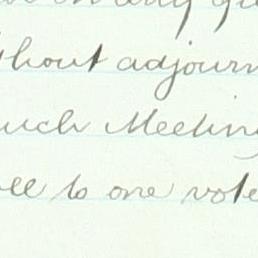 on any qu
thout adjourn
uch Meeting
ee to one vote